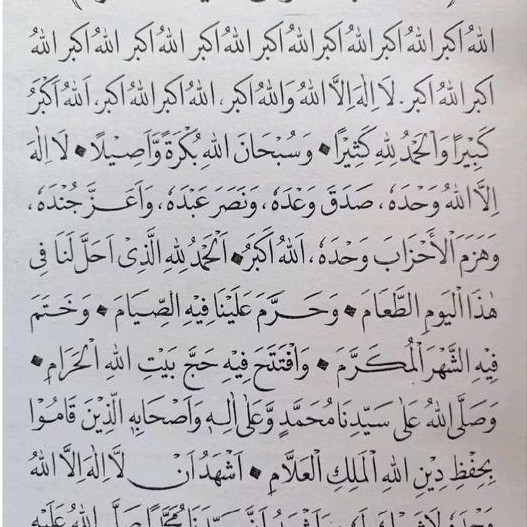 اللهُ اكبر اللهُ اكبر اللهُ اكبر اللهُ اكبر اللهُ اكبر اللهُ اكبر اللهُ اكبر اللهُ
اكبر اللهُ اكبر. لَا اِلٰهَ اِلَّا اللهُ وَاللهُ اكبر، اللهُ اكبر اللهُ اكبر، اَللهُ اَكْبَرُ
كَبِيْرًا وَالْحَمْدُ لِلهِ كَثِيْرًا ◆ وَسُبْحَانَ اللهِ بُكْرَةً وَّاَصِيْلًا ◆ لَا اِلٰهَ
اِلَّا اللهُ وَحْدَهٗ، صَدَقَ وَعْدَهٗ، وَنَصَرَ عَبْدَهٗ، وَاَعَزَّ جُنْدَهٗ،
وَهَزَمَ الْأَحْزَابَ وَحْدَهٗ، اَللهُ اَكْبَرُ ◆ اَلْحَمْدُ لِلهِ الَّذِىْ اَحَلَّ لَنَا فِى
هٰذَا الْيَوْمِ الطَّعَامَ ◆ وَحَرَّمَ عَلَيْنَا فِيْهِ الصِّيَامَ ◆ وَخَتَمَ
فِيْهِ الشَّهْرَ الْمُكَرَّمَ ◆ وَافْتَتَحَ فِيْهِ حَجَّ بَيْتِ اللهِ الْحَرَامِ ◆
وَصَلَّى اللهُ عَلٰى سَيِّدِنَا مُحَمَّدٍ وَّعَلٰى اٰلِهٖ وَاَصْحَابِهِ الَّذِيْنَ قَامُوْا
بِحِفْظِ دِيْنِ اللهِ الْمَلِكِ الْعَلَّامِ ◆ اَشْهَدُ اَنْ لَّا اِلٰهَ اِلَّا اللهُ
وَحْدَهٗ لَا شَرِيْكَ لَهٗ وَاَشْهَدُ اَنَّ سَيِّدَنَا مُحَمَّدًا صَلَّى اللهُ عَلَيْهِ